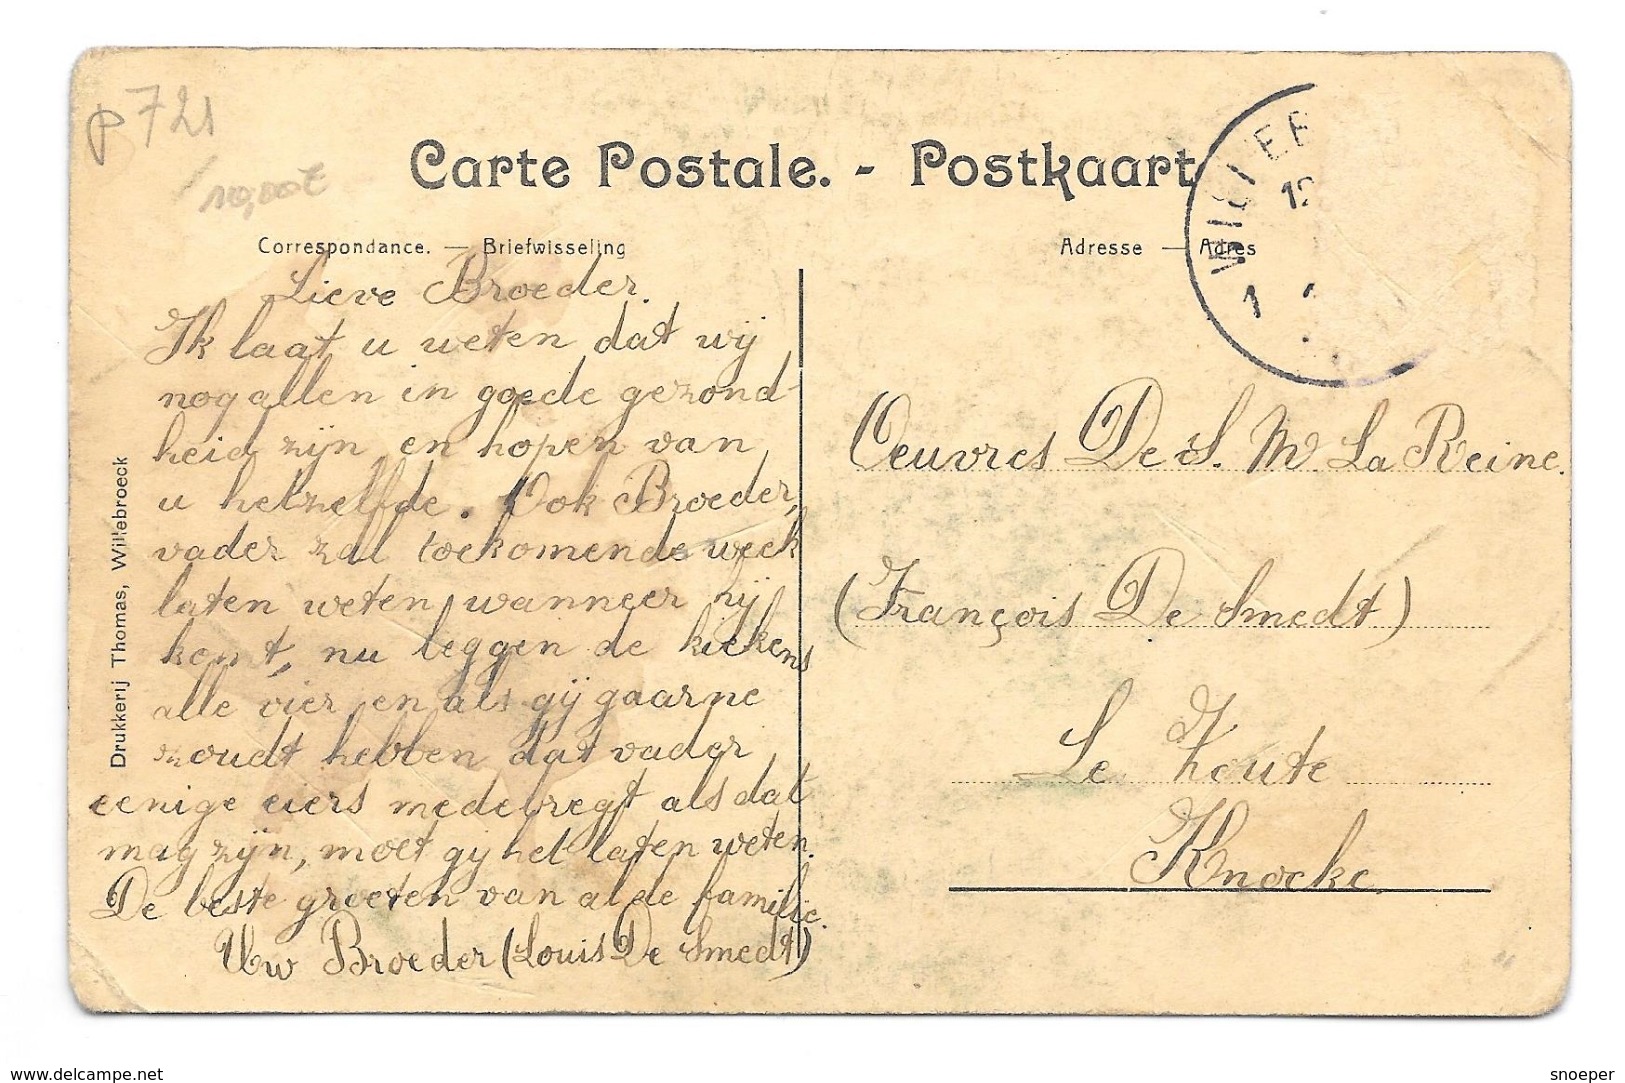 P 721
10,00€
Carte Postale. - Postkaart
Correspondance. — Briefwisseling
Adresse — Adres
12
1
Lieve Broeder.
Ik laat u weten dat wij
nog allen in goede gezond-
heid zijn en hopen van
u hetzelfde. Ook Broeder,
vader zal toekomende week
laten weten wanneer hij
komt, nu leggen de kiekens
alle vier en als gij gaarne
zoudt hebben dat vader
eenige eiers medebregt als dat
mag zijn, moet gy het laten weten.
De beste groeten van al de familie.
Uw Broeder (Louis De Smedt)
Drukkerij Thomas, Willebroeck
Oeuvres De S. M. La Reine.
(François De Smedt)
Le Zoute
Knocke.
www.delcampe.net
snoeper